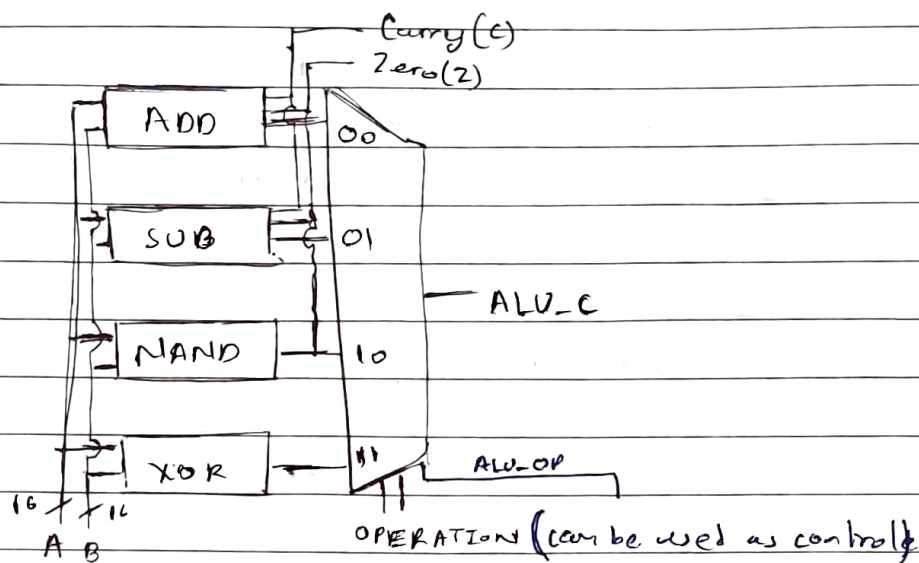 Carry(C)
Zero(Z)
ADD
00
SUB
01
ALU_C
NAND
10
XOR
11
ALU_OP
16
16
A B
OPERATION (can be used as control)